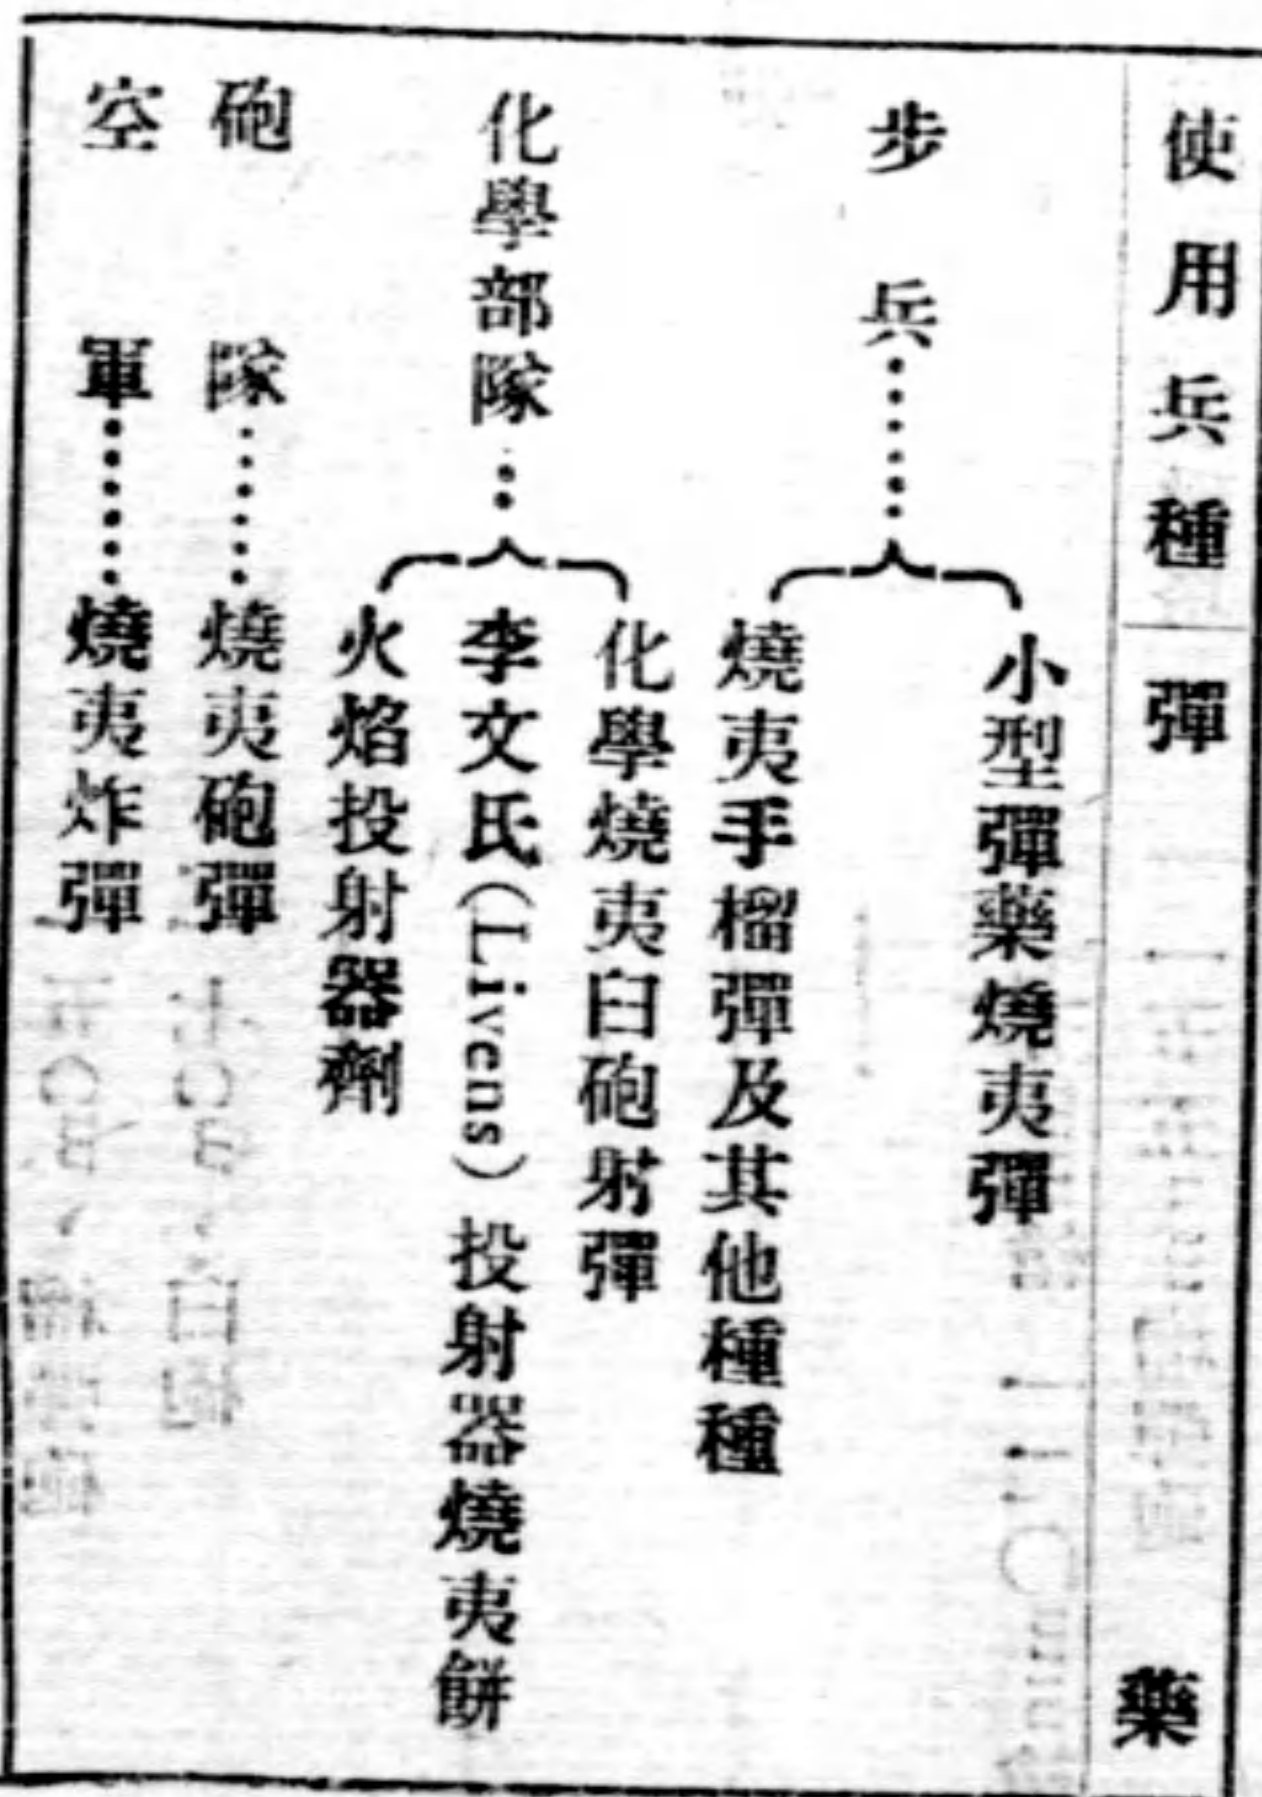 使用兵種 彈藥
步兵……
小型彈藥燒夷彈
燒夷手榴彈及其他種種
化學部隊…
化學燒夷臼砲射彈
李文氏(Livens)投射器燒夷餅
火焰投射器劑
砲隊……燒夷砲彈
空軍……燒夷炸彈